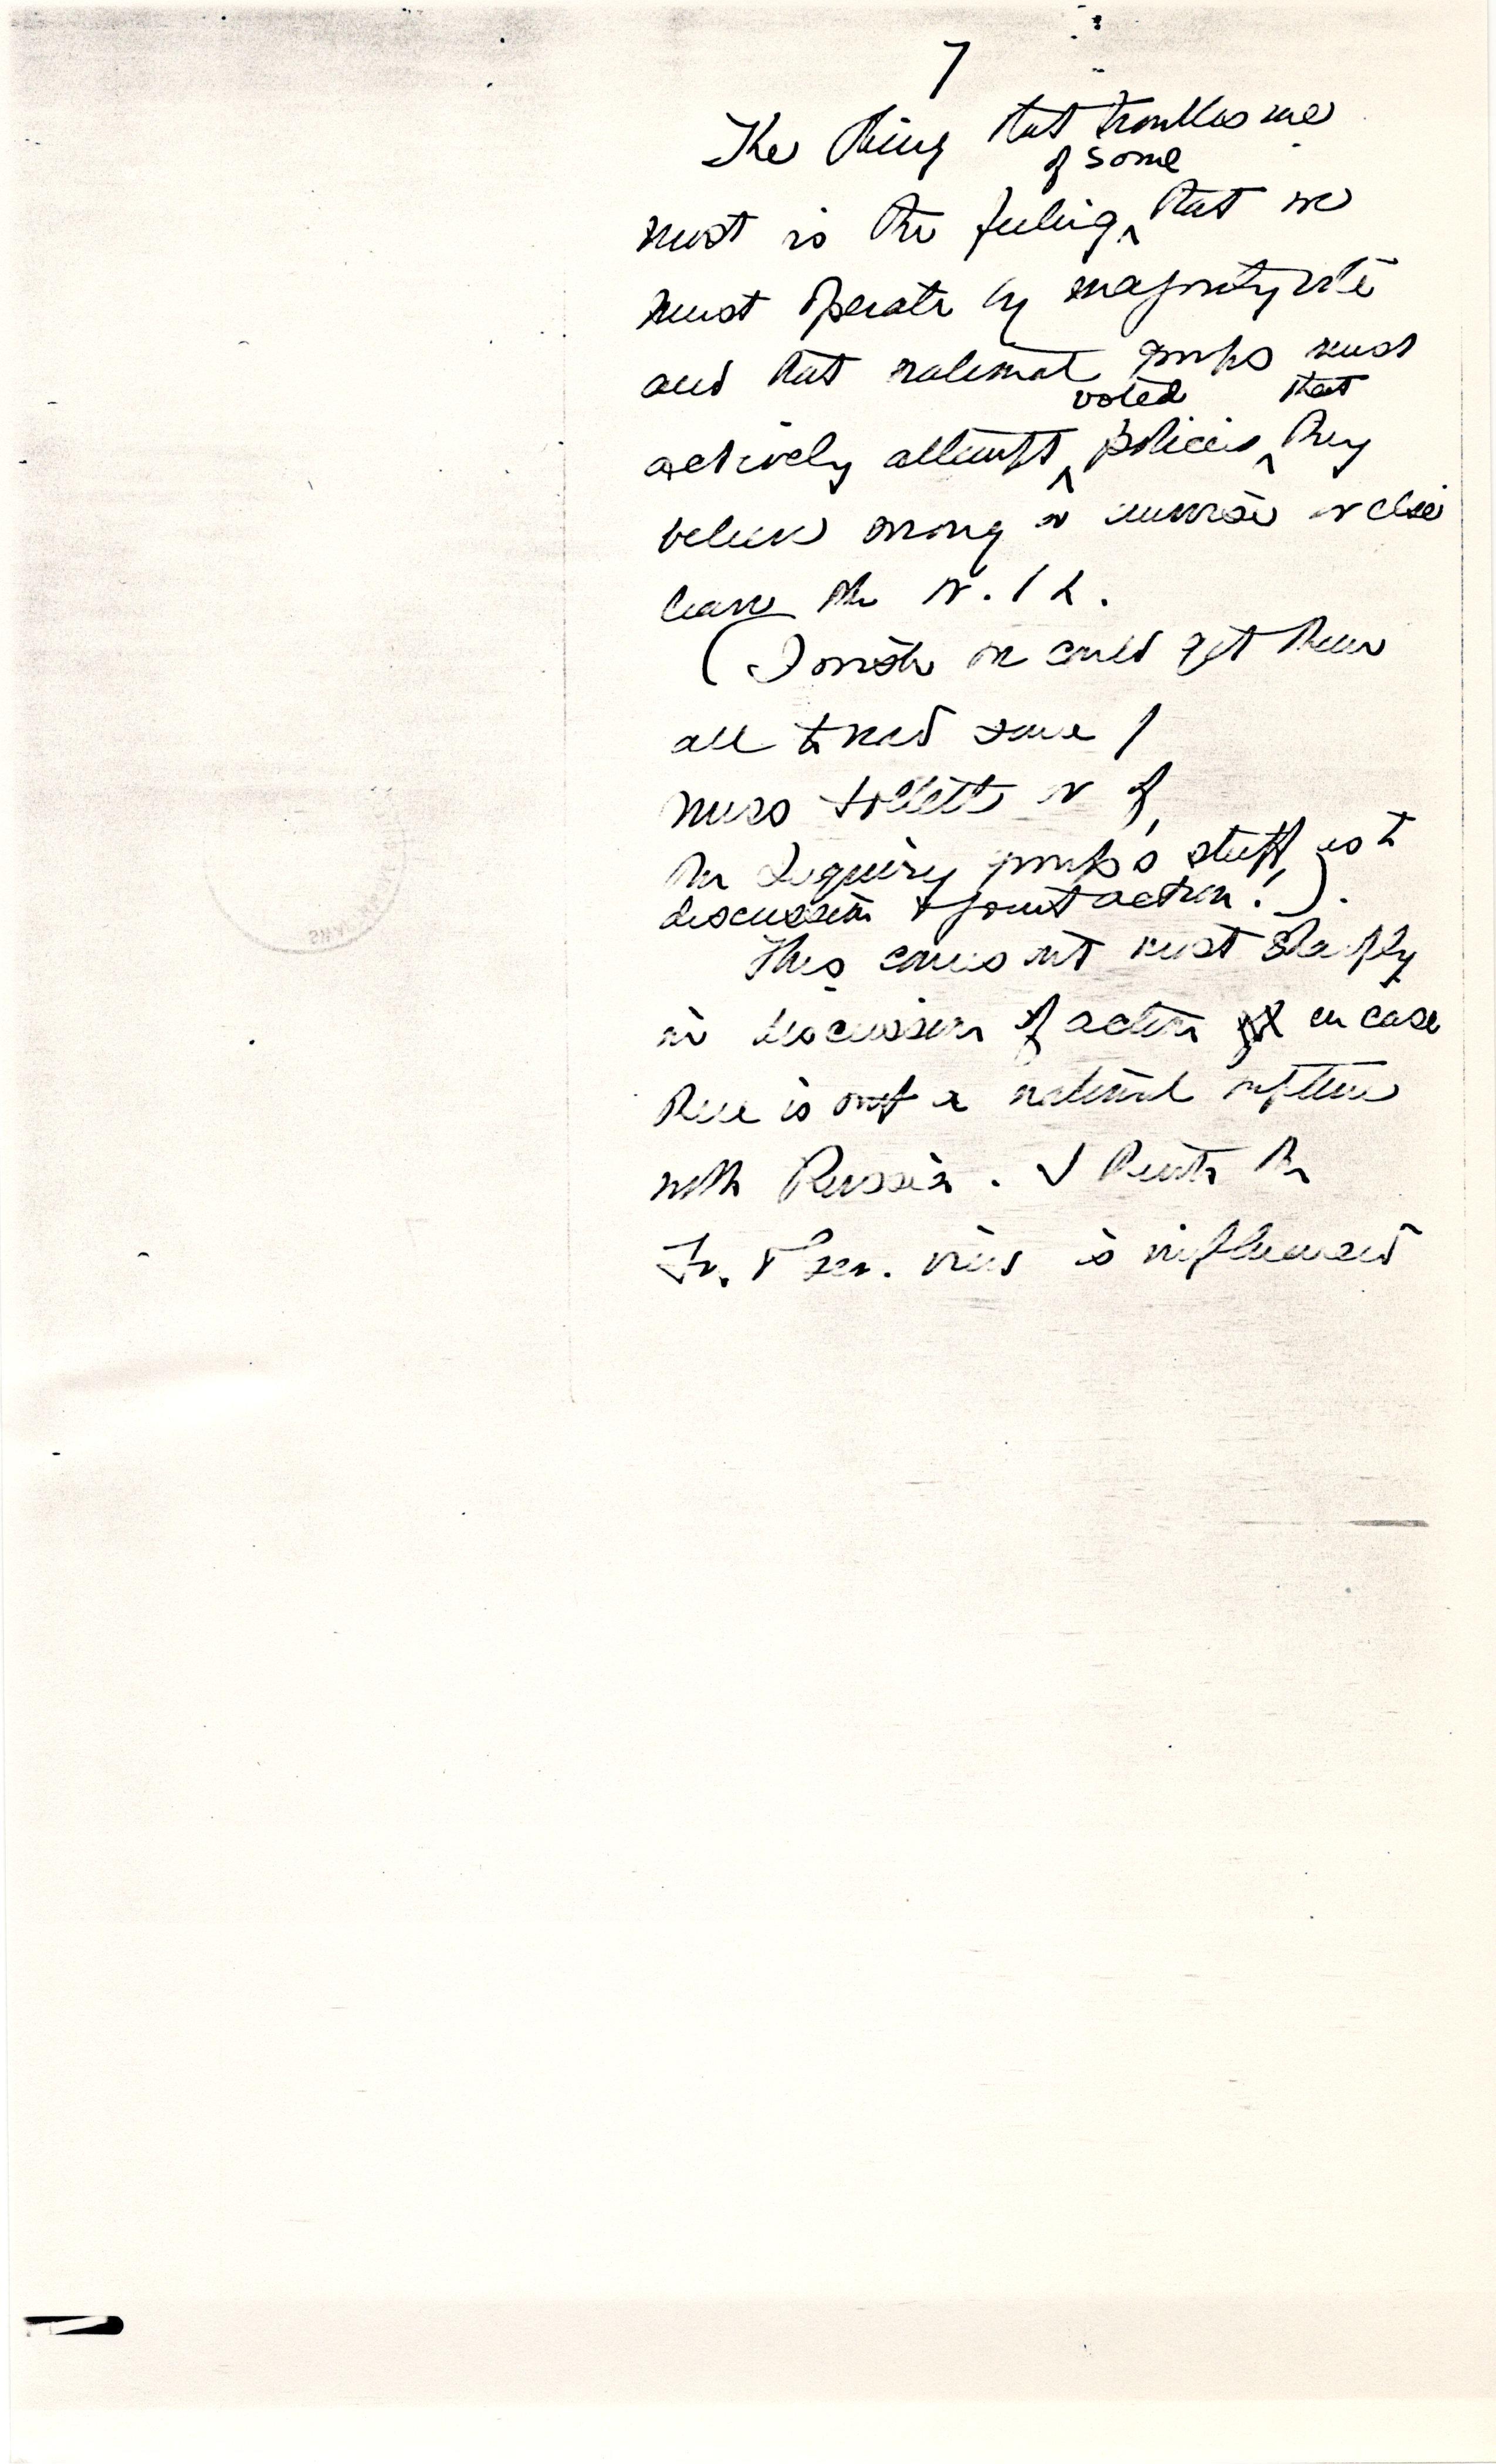 7
The thing that troubles me
of some
most is the feeling ^ that we
must operate by majority vote
and that national groups must
voted that
actively attempt ^ policies ^ they
believe wrong or unwise or else
leave the W.I.L.
(I wish we could get them
all to read some of
Miss Follett's or of
the Inquiry group's stuff, as to
discussion & joint action!).
This comes out most sharply
in discussion of action in case
there is a national rupture
with Russia. I think the
Fr. & Ger. view is influenced